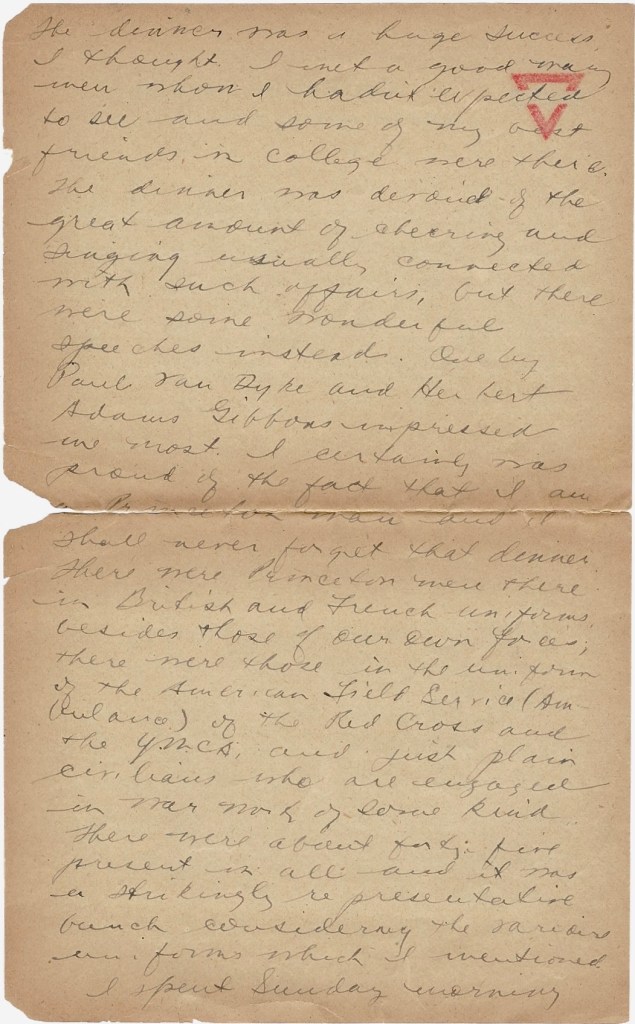 The dinner was a huge success
I thought. I met a good many
men whom I hadn't expected
to see and some of my best
friends in college were there.
The dinner was devoid of the
great amount of cheering and
singing usually connected
with such affairs, but there
were some wonderful
speeches instead. One by
Paul Van Dyke and Herbert
Adams Gibbons impressed
me most. I certainly was
proud of the fact that I am
a Princeton man and I
shall never forget that dinner.
There were Princeton men there
in British and French uniforms,
besides those of our own forces;
there were those in the uniform
of the American Field Service (Am-
bulance) of the Red Cross and
the Y.M.C.A. and just plain
civilians who are engaged
in war work of some kind.
There were about forty-five
present in all and it was
a strikingly representative
bunch considering the various
uniforms which I mentioned.
I spent Sunday morning